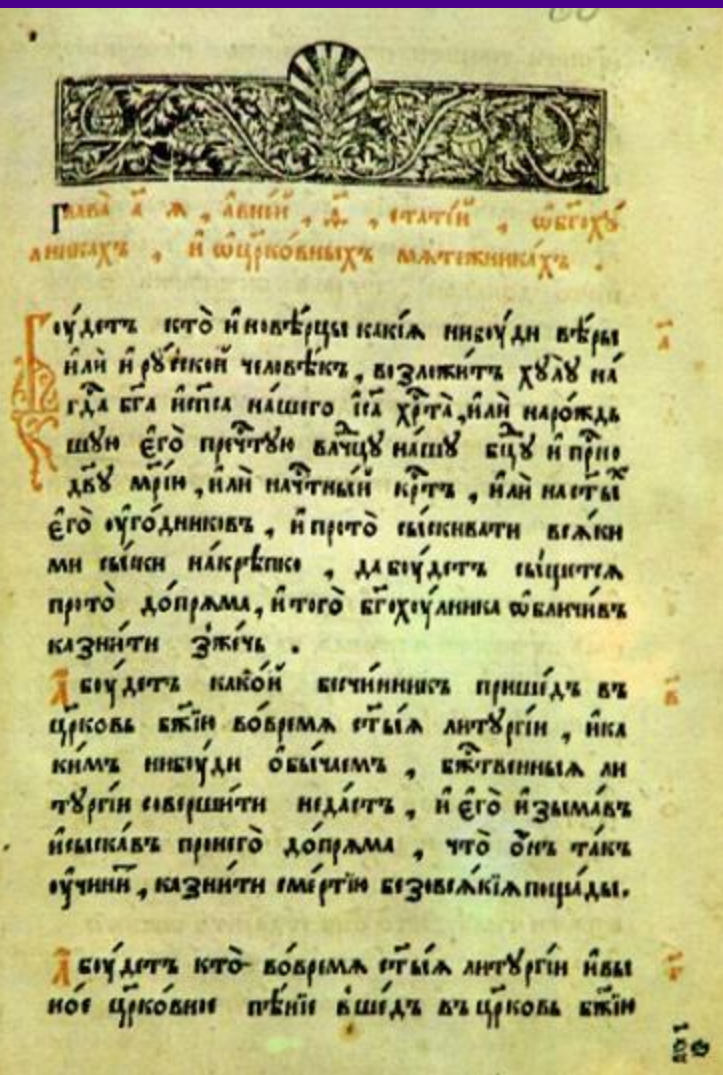 Глава̀ а҃ ѧ , а҆вне́й , ѳ҃ , статі́й , ѡ҆бг҃охꙋ́
лникахъ , и҆ ѡ҆цр҃ко́вныхъ мѧтежника́хъ .
Бꙋ́детъ кто̀ и҆нове́рцы какі́ѧ нибꙋ́ди вѣ́ры
и҆лѝ и҆ рꙋ́ской человѣ́къ , возложи́тъ хꙋлꙋ̀ на́
гдⷭ҇а бг҃а и҆ сп҃са на́шего і҆са҃ хрⷭ҇та̀ , и҆лѝ наро́ждь
шꙋю є҆го̀ пречⷭ҇тꙋю влⷣчцꙋ на́шꙋ бцⷣꙋ и҆ прⷭ҇но
дв҃ꙋ мр҃і́ю , и҆лѝ начⷭ҇тны́й крⷭ҇тъ , и҆лѝ на ст҃ы́ⷯ
є҆го̀ ѹ҆го́дниковъ , и҆ прото̀ сы́скивати всѧ́ки
ми сы́ски на́крѣпко , да бꙋ́детъ сы́щетсѧ
прото̀ до́прѧма , и҆ того̀ бг҃охꙋ́лника ѡ҆бличи́въ
казни́ти зже́чь .
А҆ бꙋ́детъ како́й бесчи́нникъ прише́дъ въ
цр҃ковь бж҃ію во́времѧ ст҃ы́ѧ литꙋргі́и , и҆ ка
ки́мъ нибꙋ́ди ѻ҆бы́чаемъ , бжⷭ҇твенныѧ ли
тꙋргі́и соверши́ти неда́стъ , и҆ є҆го̀ и҆зыма́въ
и҆ сыска́въ пронего̀ до́прѧма , что̀ ѻ҆́нъ та́къ
ѹ҆чини́т , казни́ти сме́ртію безовсѧ́кіѧ поща́ды .
А҆ бꙋ́детъ кто̀ во́времѧ ст҃ы́ѧ литꙋргі́и и҆ вы
но́е цр҃ко́вное пѣ́ніе вше́дъ въ цр҃ковь бж҃ію
а҃
в҃
г҃